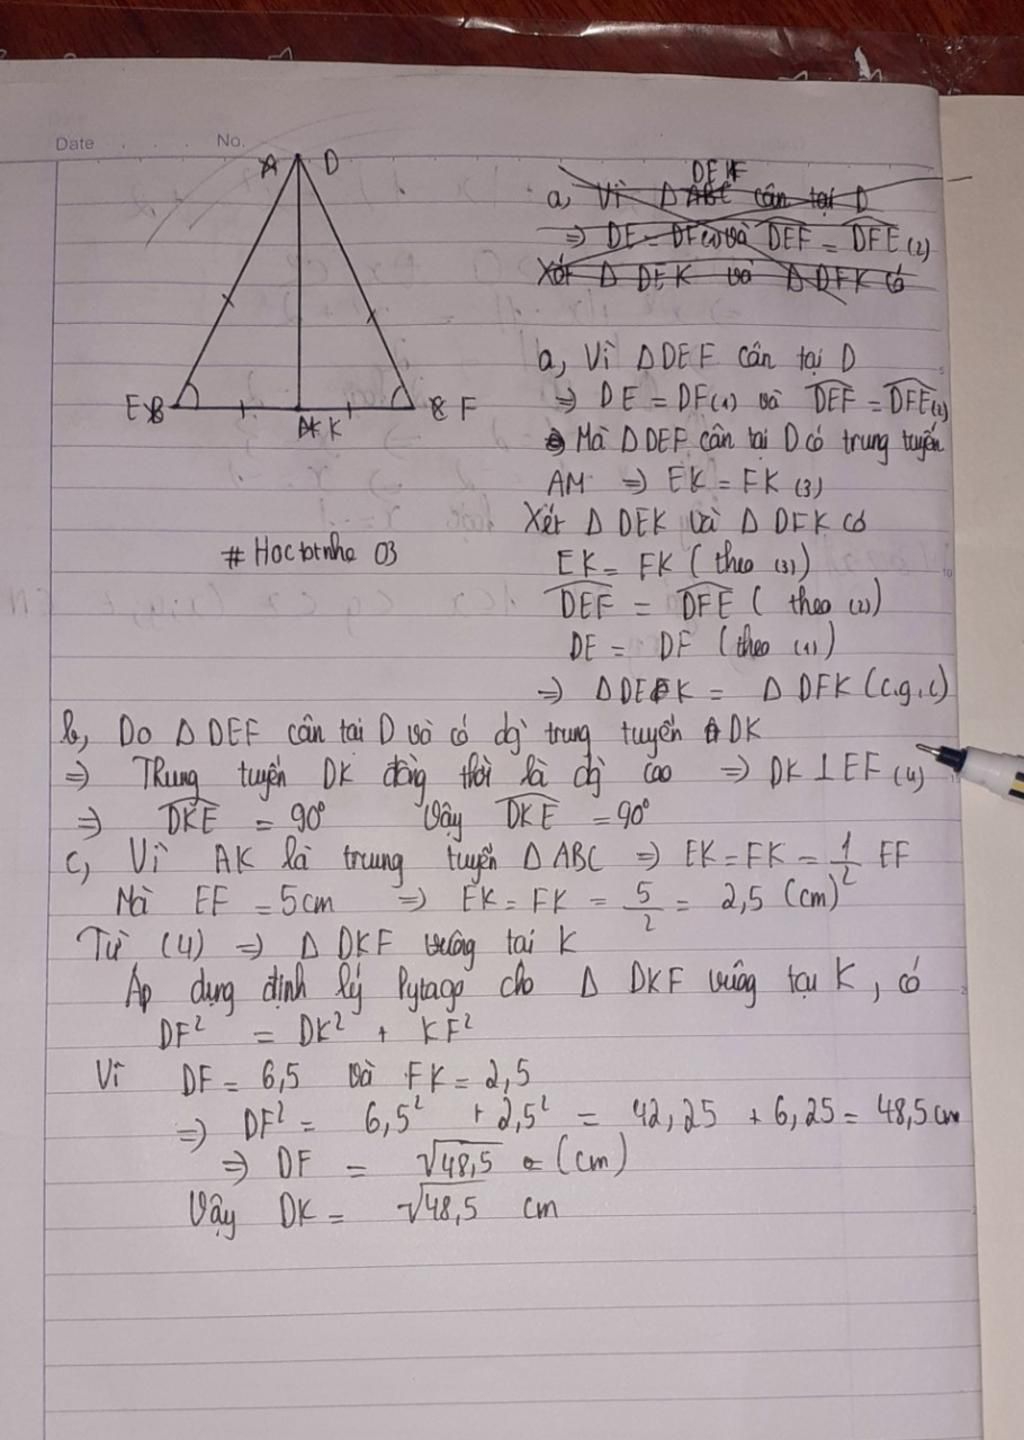 Date No.
A D
E B K C F
# Hoc tot nha 03
DEF
a, Vì Δ ABC cân tại D
⇒ DE = DF (1) và DEF = DFE (2)
Xét Δ DEK và Δ DFK có
a, Vì Δ DEF cân tại D
⇒ DE = DF (1) và DEF = DFE (2)
Mà Δ DEF cân tại D có trung tuyến
AM ⇒ EK = FK (3)
Xét Δ DEK và Δ DFK có
EK = FK ( theo (3))
DEF = DFE ( theo (2))
DE = DF (theo (1))
⇒ Δ DEK = Δ DFK (c.g.c)
b, Do Δ DEF cân tai D và có đg` trung tuyến DK
⇒ Trung tuyến DK đồng thời là đg` cao ⇒ DK ⊥ EF (4)
⇒ DKE = 90° Vậy DKE = 90°
c, Vì AK là trung tuyến Δ ABC ⇒ EK = FK = 1/2 EF
Mà EF = 5cm ⇒ EK = FK = 5/2 = 2,5 (cm)
Từ (4) ⇒ Δ DKF vuông tai K
Áp dụng định lý Pytago cho Δ DKF vuông tại K, có
DF² = DK² + KF²
Vì DF = 6,5 và FK = 2,5
⇒ DF² = 6,5² + 2,5² = 42,25 + 6,25 = 48,5 cm
⇒ DF = √48,5 (cm)
Vậy DK = √48,5 cm